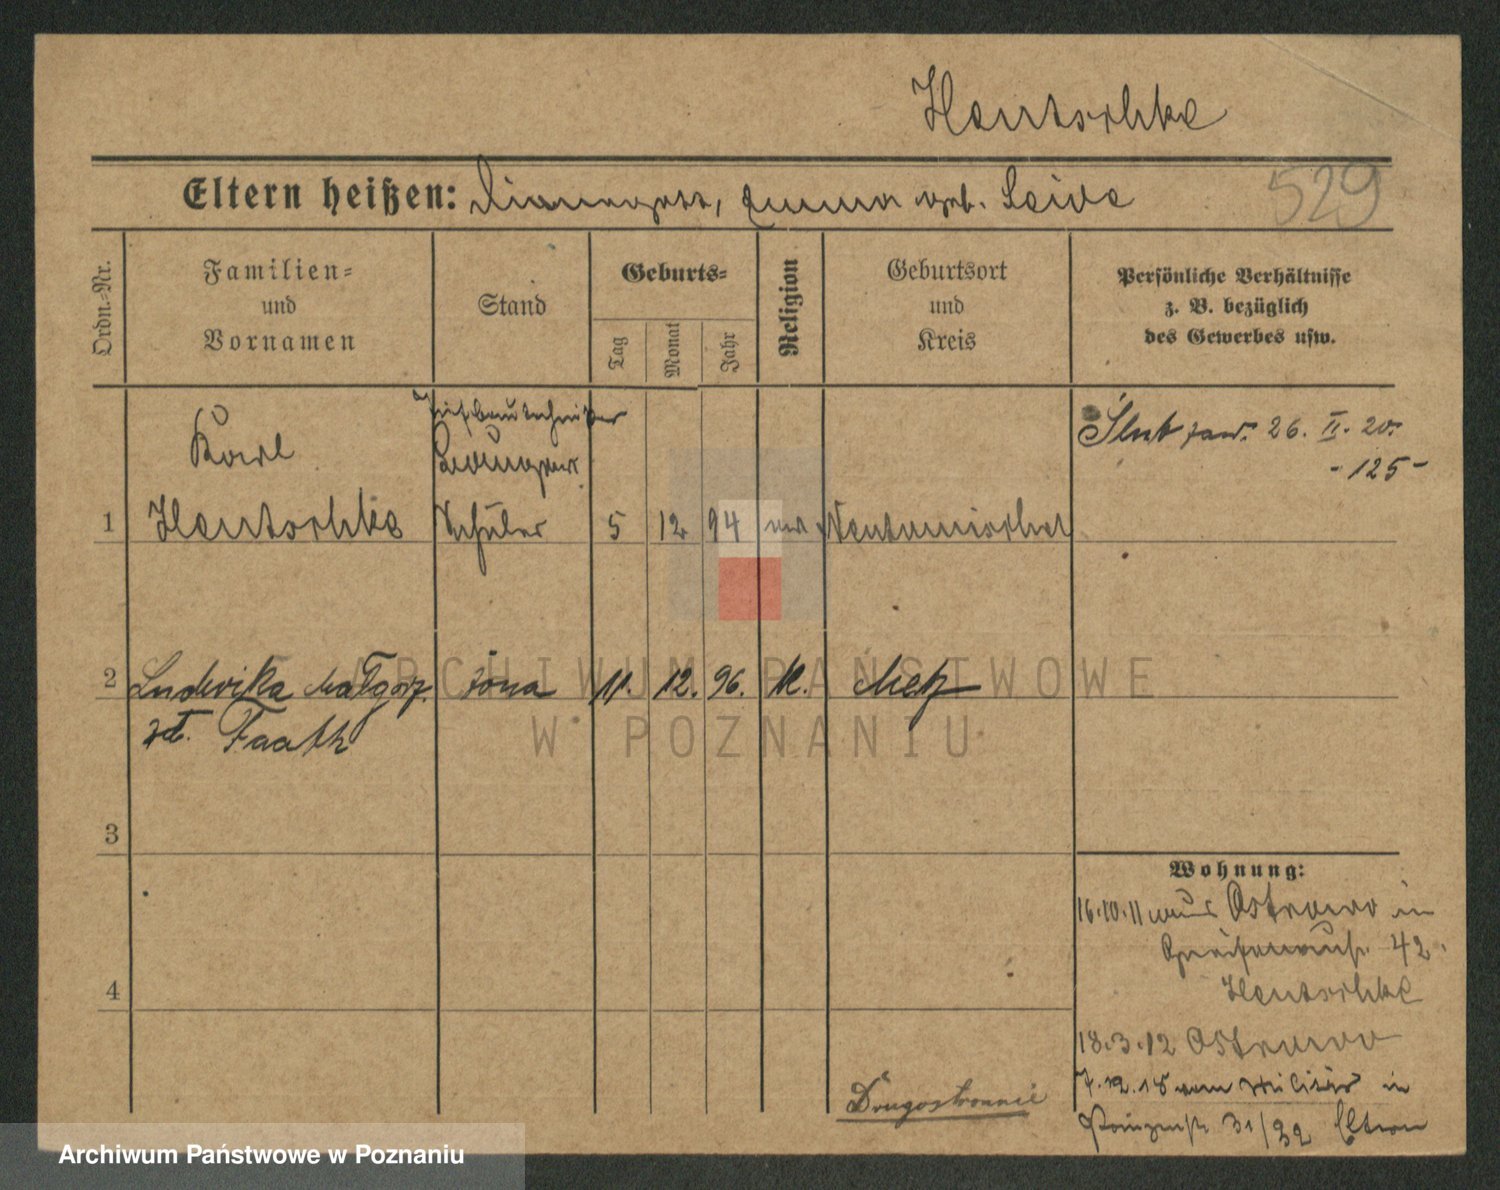 Hentschke
529
Eltern heißen: Emma geb. Seide
Ordn.=Nr.
Familien=
und
Vornamen
Stand
Geburts=
Tag
Monat
Jahr
Religion
Geburtsort
und
Kreis
Persönliche Verhältnisse
z. B. bezüglich
des Gewerbes usw.
Tiefbautechniker
Karl
Ślub zaw. 26. II. 20.
- 125 -
1 Hentschke Schüler 5 12 94 ev Neutomischel
2 Ludwika Małgorz. żona 11. 12. 96. K. Metz
zd. Faath
3
Wohnung:
16.10.11 aus Ostrowo in
42
4
Hentschke
18.3.12 Ostrowo
7.12.18 vom Militär in
Prinzenstr 31/32 Eltern
Drugostronnie
ARCHIWUM PAŃSTWOWE
W POZNANIU
Archiwum Państwowe w Poznaniu